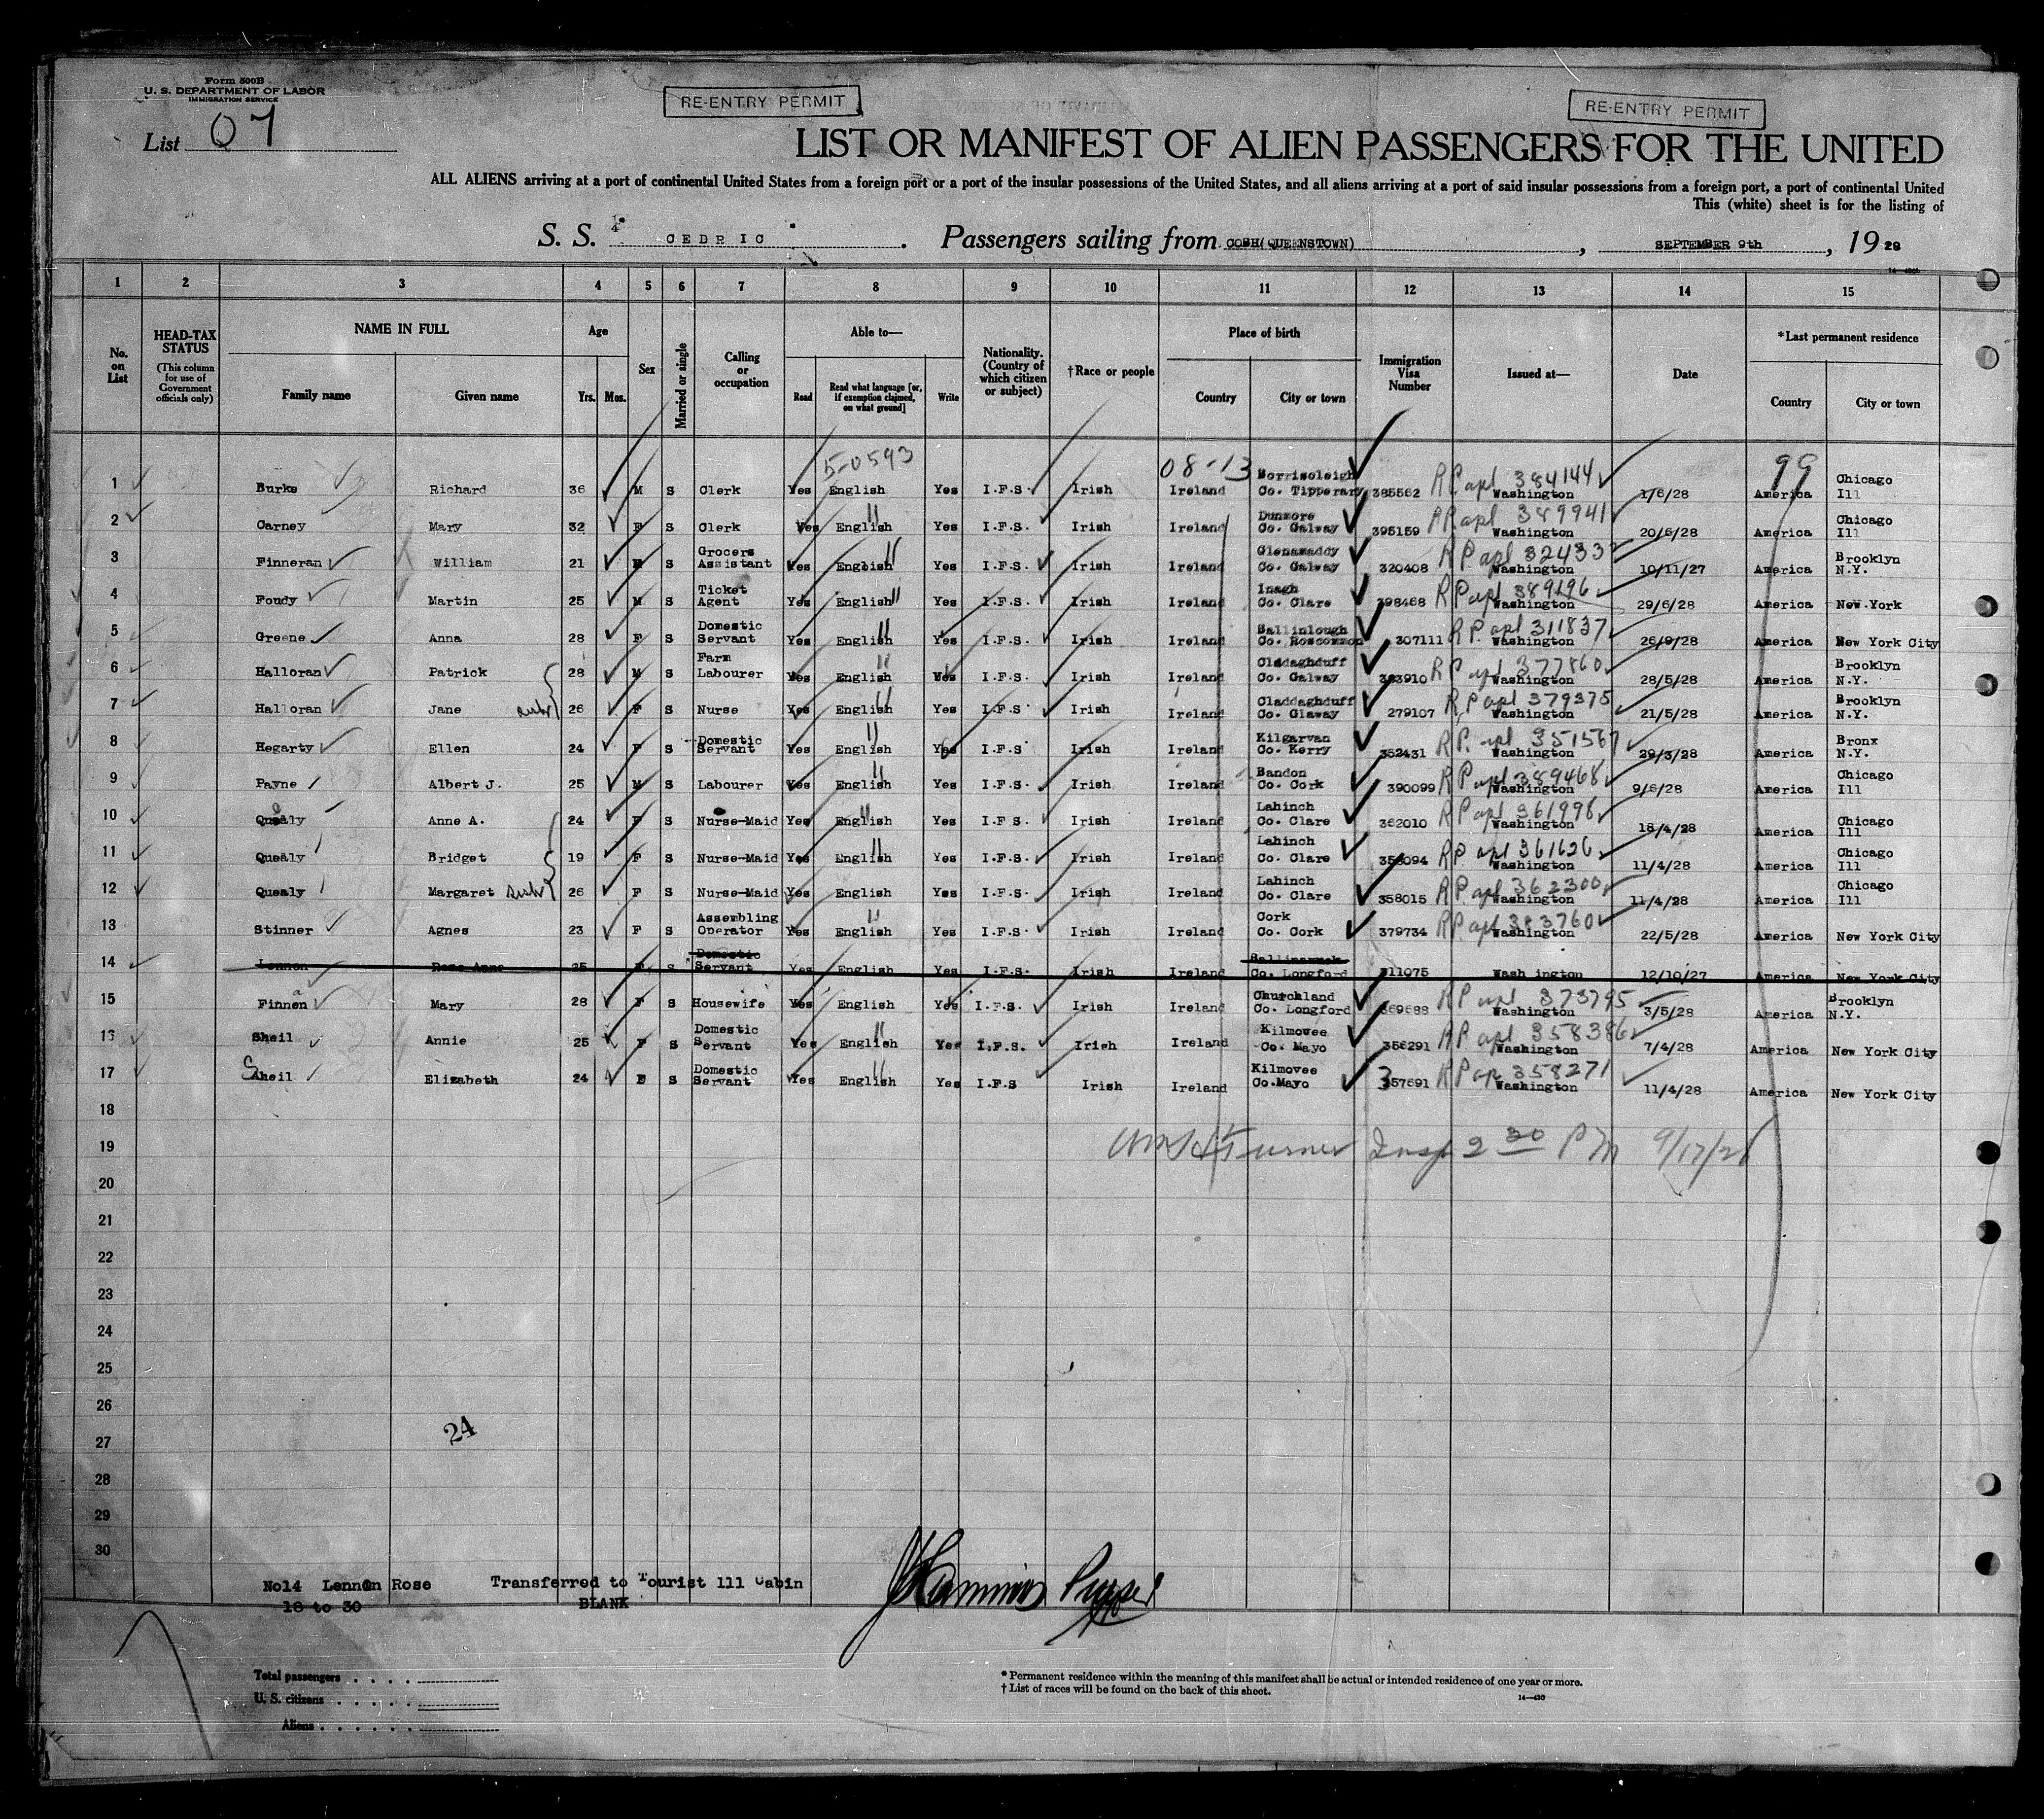 Form 500B
U. S. DEPARTMENT OF LABOR
IMMIGRATION SERVICE
RE-ENTRY PERMIT
RE-ENTRY PERMIT
List 07
LIST OR MANIFEST OF ALIEN PASSENGERS FOR THE UNITED
ALL ALIENS arriving at a port of continental United States from a foreign port or a port of the insular possessions of the United States, and all aliens arriving at a port of said insular possessions from a foreign port, a port of continental United
This (white) sheet is for the listing of
S. S. CEDRIC . Passengers sailing from COBH(QUEENSTOWN) , SEPTEMBER 9th , 19 28
1 2 3 4 5 6 7 8 9 10 11 12 13 14 15
No. on List
HEAD-TAX STATUS (This column for use of Government officials only)
NAME IN FULL
Family name Given name
Age
Yrs. Mos.
Sex
Married or single
Calling or occupation
Able to—
Read Read what language [or, if exemption claimed, on what ground] Write
Nationality. (Country of which citizen or subject)
†Race or people
Place of birth
Country City or town
Immigration Visa Number
Issued at—
Date
*Last permanent residence
Country City or town
5-0593 08-13 99
1 Burke Richard 36 M S Clerk Yes English Yes I.F.S. Irish Ireland Borrisoleigh Co. Tipperary 385562 R P apl 384144 Washington 1/6/28 America Chicago Ill
2 Carney Mary 32 F S Clerk Yes English Yes I.F.S. Irish Ireland Dunmore Co. Galway 395159 R P apl 389941 Washington 20/6/28 America Chicago Ill
3 Finneran William 21 M S Grocers Assistant Yes English Yes I.F.S. Irish Ireland Glenamaddy Co. Galway 320408 R P apl Washington 10/11/27 America Brooklyn N.Y.
4 Foudy Martin 25 M S Ticket Agent Yes English Yes I.F.S. Irish Ireland Inagh Co. Clare 398468 R P apl 389196 Washington 29/6/28 America New York
5 Greene Anna 28 F S Domestic Servant Yes English Yes I.F.S. Irish Ireland Ballinlough Co. Roscommon 307111 R P. apl 311837 Washington 26/9/28 America New York City
6 Halloran Patrick 28 M S Farm Labourer Yes English Yes I.F.S. Irish Ireland Cladaghduff Co. Galway 383910 R P apl 377860 Washington 28/5/28 America Brooklyn N.Y.
7 Halloran Jane 26 F S Nurse Yes English Yes I.F.S. Irish Ireland Claddaghduff Co. Glaway 279107 R P apl 379375 Washington 21/5/28 America Brooklyn N.Y.
8 Hegarty Ellen 24 F S Domestic Servant Yes English Yes I.F.S Irish Ireland Kilgarvan Co. Kerry 352431 R P. apl 351567 Washington 29/3/28 America Bronx N.Y.
9 Payne Albert J. 25 M S Labourer Yes English Yes I.F.S. Irish Ireland Bandon Co. Cork 390099 R P apl 389468 Washington 9/6/28 America Chicago Ill
10 Quealy Anne A. 24 F S Nurse-Maid Yes English Yes I.F S. Irish Ireland Lahinch Co. Clare 362010 R P apl 361998 Washington 18/4/28 America Chicago Ill
11 Quealy Bridget 19 F S Nurse-Maid Yes English Yes I.F.S. Irish Ireland Lahinch Co. Clare 358094 R P apl 361626 Washington 11/4/28 America Chicago Ill
12 Quealy Margaret 26 F S Nurse-Maid Yes English Yes I.F.S. Irish Ireland Lahinch Co. Clare 358015 R P apl 362300 Washington 11/4/28 America Chicago Ill
13 Stinner Agnes 23 F S Assembling Operator Yes English Yes I.F.S. Irish Ireland Cork Co. Cork 379734 R P apl 383760 Washington 22/5/28 America New York City
14 Lennon Rose Anne 25 F S Domestic Servant Yes English Yes I.F.S. Irish Ireland Ballinamuck Co. Longford 311075 Wash ington 12/10/27 America New York City
15 Finnen Mary 28 F S Housewife Yes English Yes I.F.S. Irish Ireland Churchland Co. Longford 369688 R P apl 373795 Washington 3/5/28 America Brooklyn N.Y.
16 Sheil Annie 25 F S Domestic Servant Yes English Yes I.F.S. Irish Ireland Kilmovee Co. Mayo 356291 R P apl 358386 Washington 7/4/28 America New York City
17 Sheil Elizabeth 24 F S Domestic Servant Yes English Yes I.F.S Irish Ireland Kilmovee Co.Mayo 357691 R P ap 358271 Washington 11/4/28 America New York City
18
19 Turner Insp 2 30 PM 9/17/28
20
21
22
23
24
25
26
27
24
28
29
30
No14 Lennon Rose Transferred to Tourist 111 Cabin
18 to 30 BLANK
Purser
Total passengers
U. S. citizens
Aliens
* Permanent residence within the meaning of this manifest shall be actual or intended residence of one year or more.
† List of races will be found on the back of this sheet.
14—430